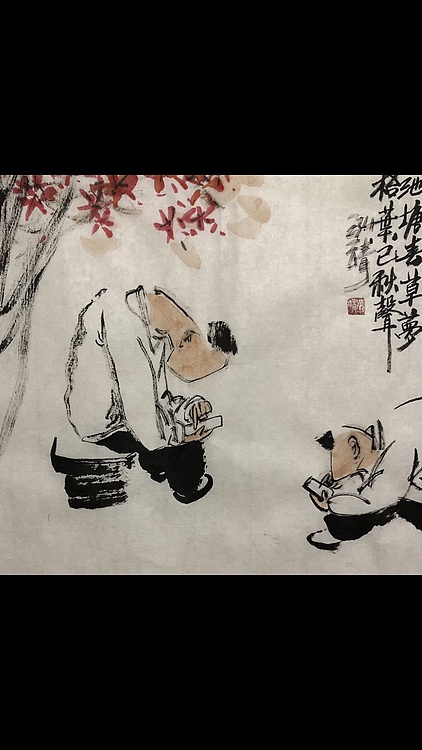 池塘春草夢
梧葉已秋聲